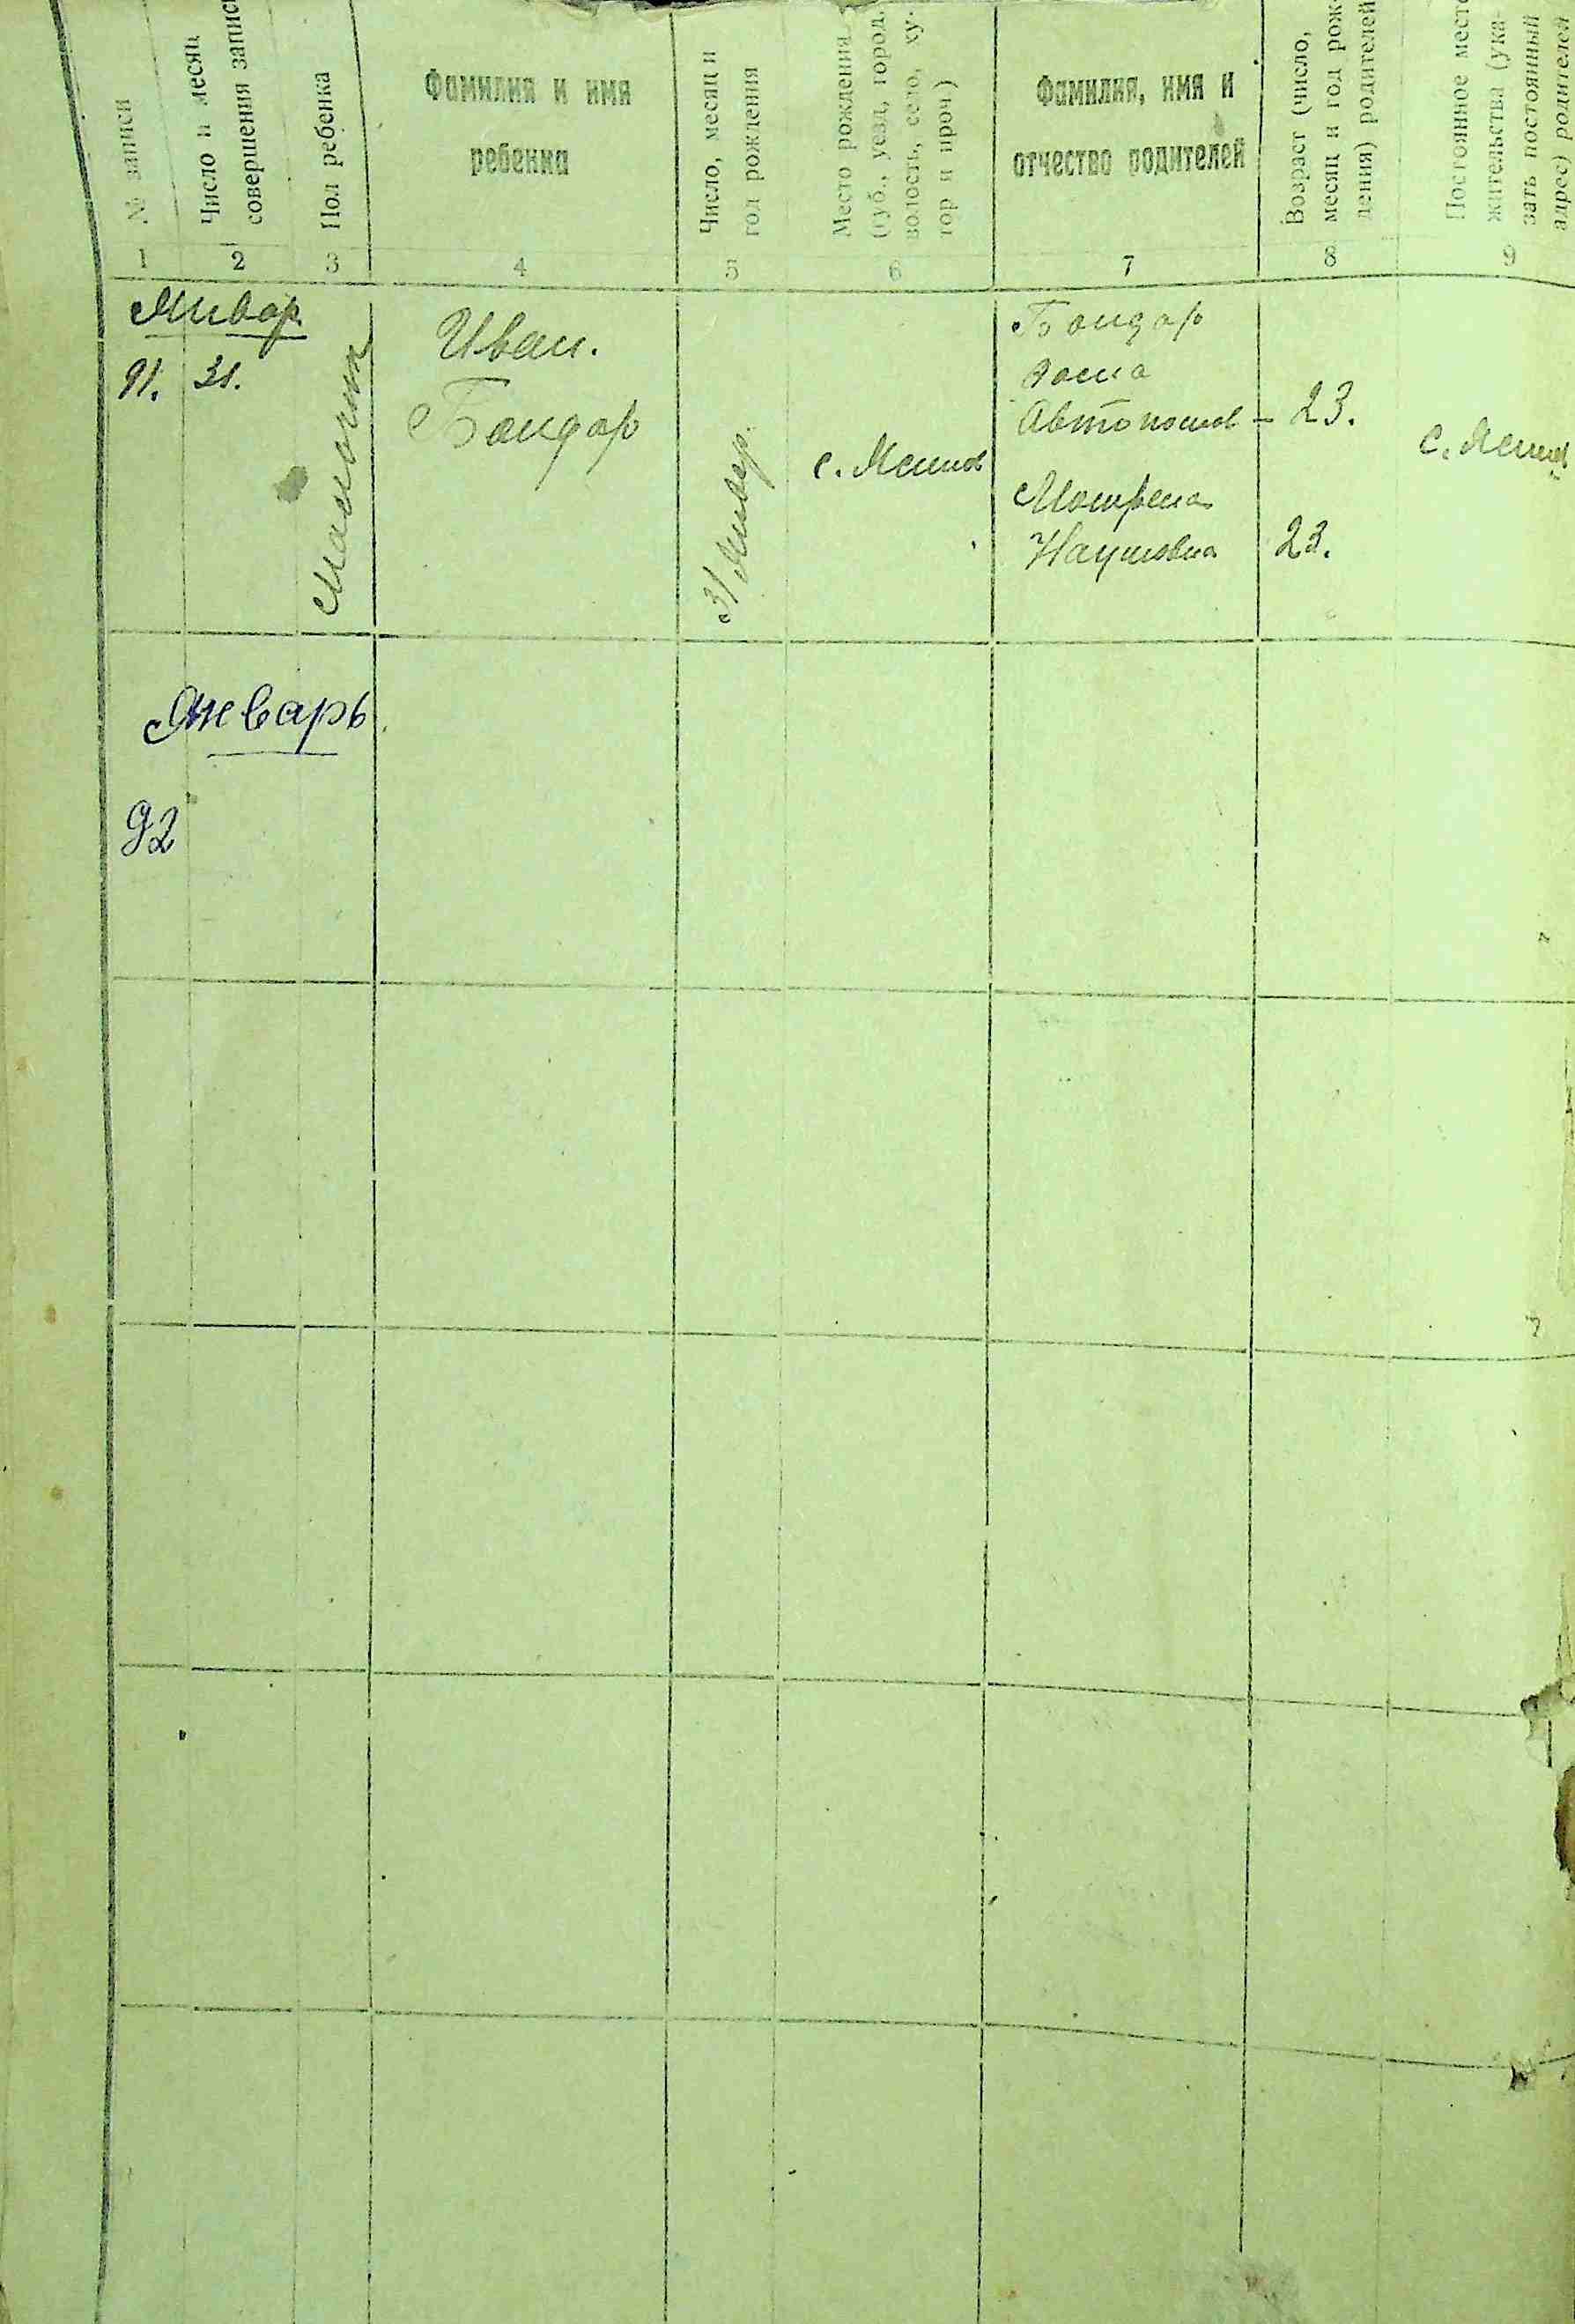 № записи
Число и месяц
совершения записи
Пол ребенка
Фамилия и имя
ребенка
Число, месяц и
год рождения
Место рождения
(губ., уезд, город,
волость, село, ху-
тор и проч)
Фамилия, имя и
отчество родителей
Возраст (число,
месяц и год рож-
дения) родителей
Постоянное место
жительства (ука-
зать постоянный
адрес) родителей
1 2 3 4 5 6 7 8 9
Январ
91. 31.
Иван.
Бондар
31 Январ.
с.
Бондар
Автономов - 23.
Мотрена
Наумовна 23.
с.
Январь
92